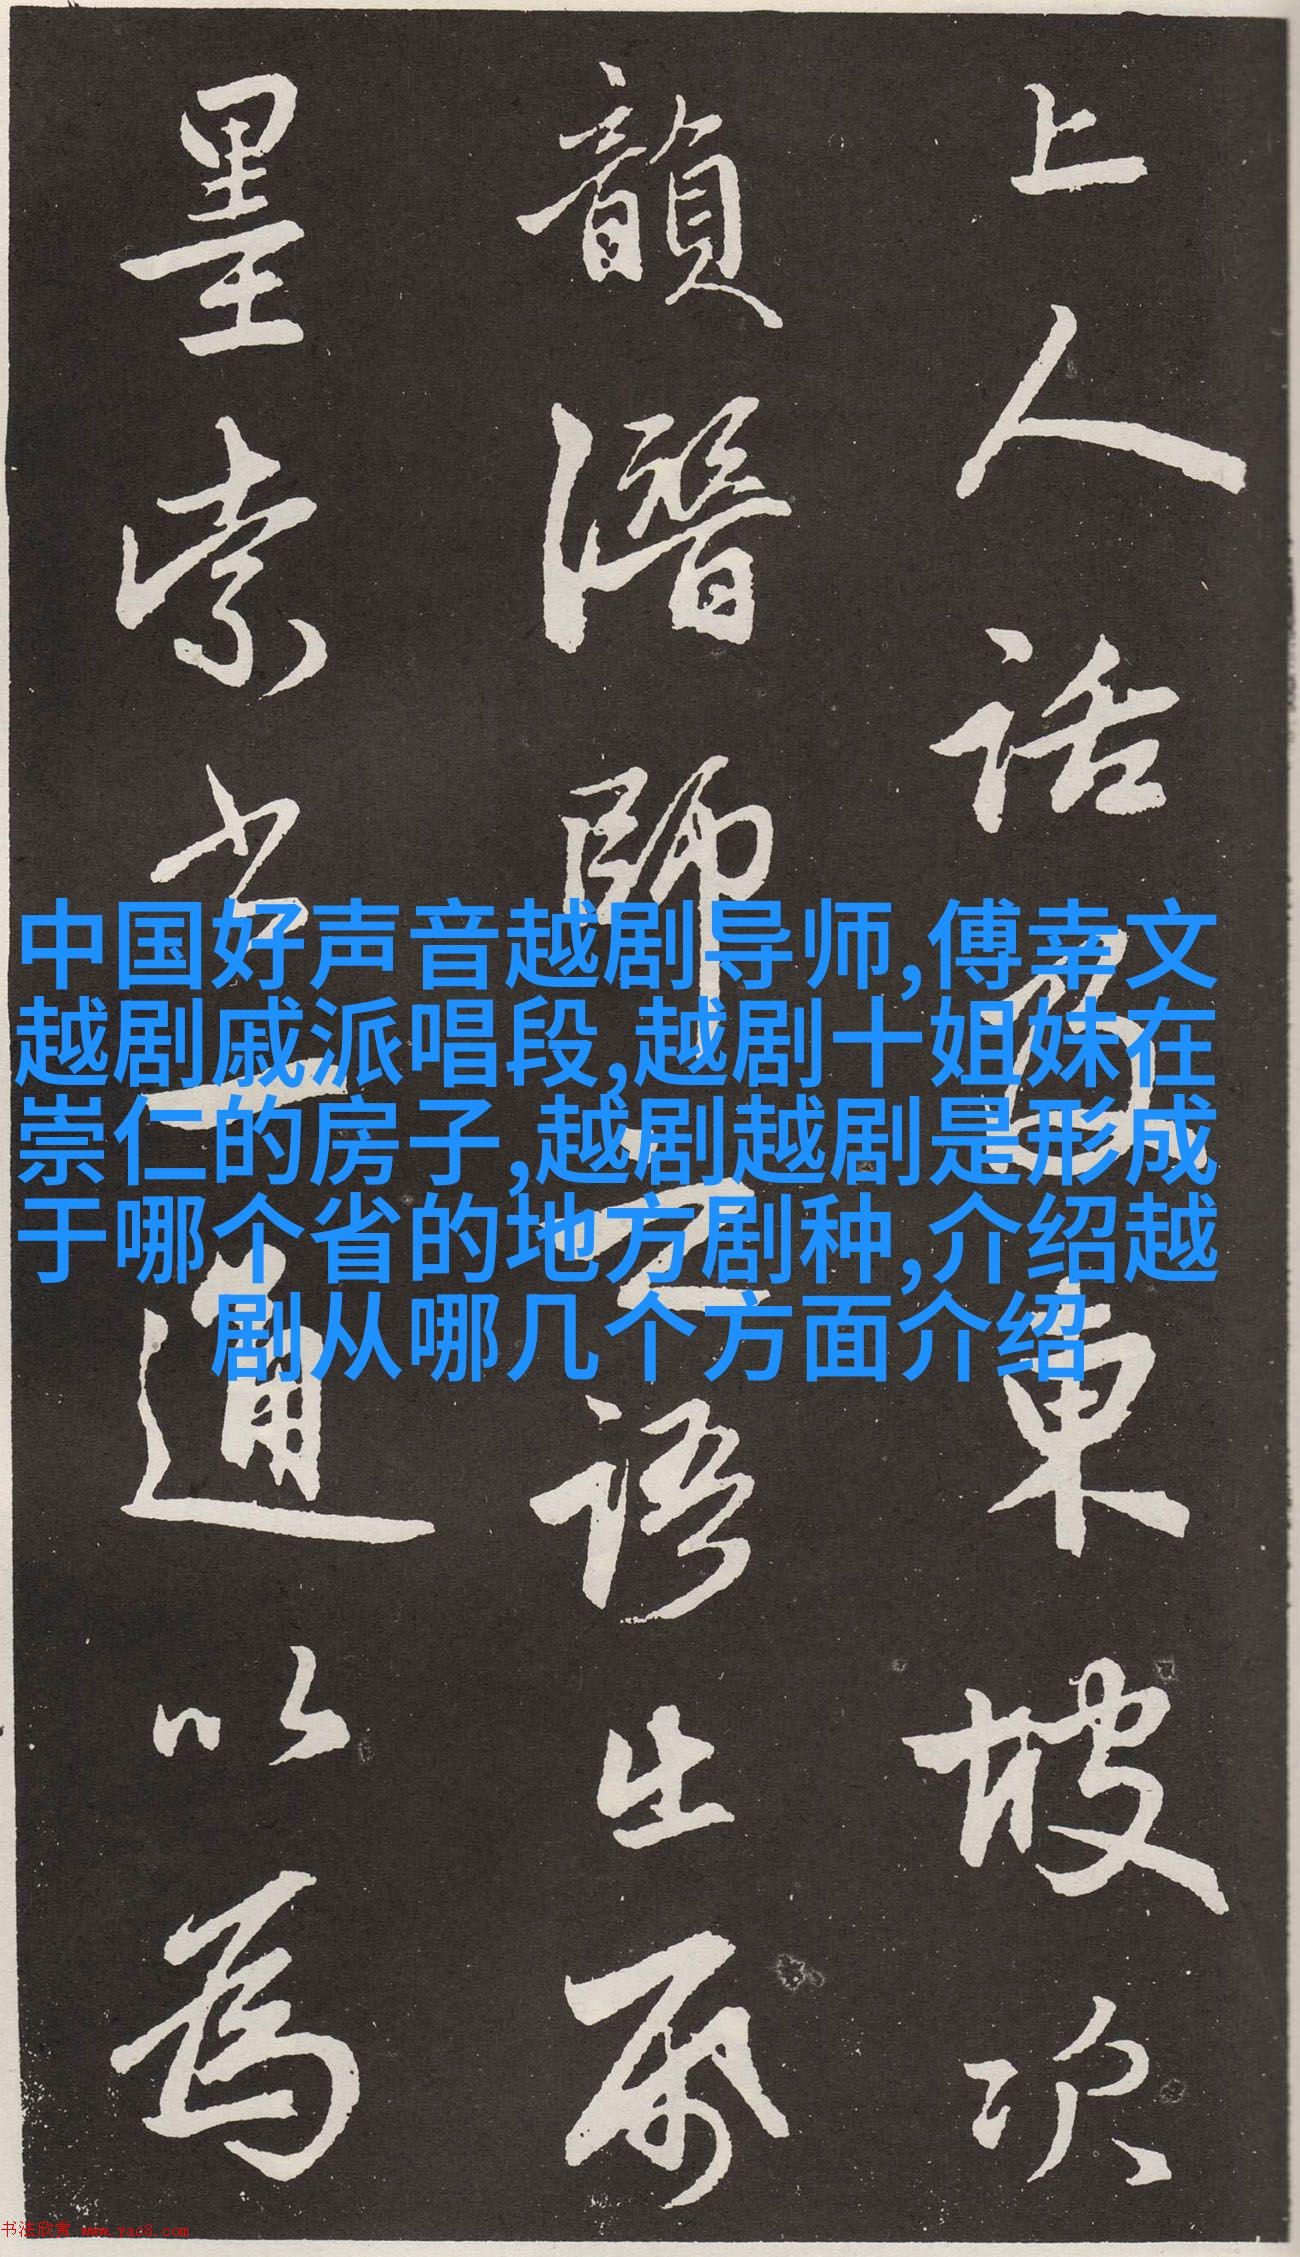 上人話東坡次
韻潛師之語出帋
墨索書一通以為
中国好声音越剧导师,傅幸文
越剧戚派唱段,越剧十姐妹在
崇仁的房子,越剧越剧是形成
于哪个省的地方剧种,介绍越
剧从哪几个方面介绍
书法欣赏 www.yac8.com